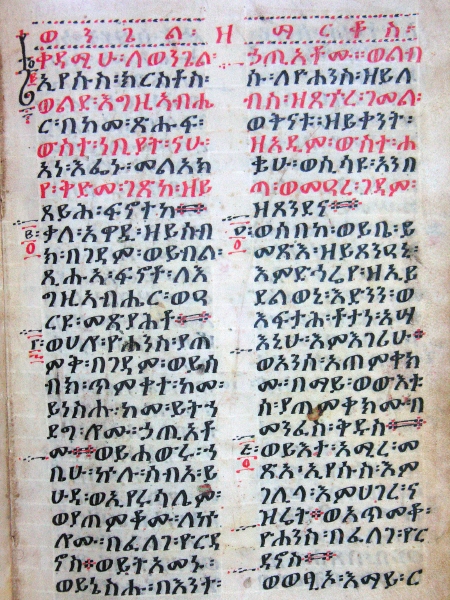 ወንጌል ዘማርቆስ።
ቀዳሚሁ፡ለወንጌል፡
ኢየሱስ፡ክርስቶስ፡
ወልደ፡እግዚአብሔ
ር፡በከመ፡ጽሑፍ፡
ውስተ፡ነቢያት፡ናሁ፡
አነ፡እፌኑ፡መልአክ
የ፡ቅድመ፡ገጽከ፡ዘይ
ጸይሕ፡ፍኖተከ።
ቃለ፡አዋዲ፡ዘይሰብ
ክ፡በገዳም፡ወይብል፡
ጺሑአ፡ፍኖቶ፡ለእ
ግዚአብሔር፡ወዐ
ርዩ፡መጽያሕቶ።
ወሀሎ፡ዮሐንስ፡ያጠ
ምቅ፡በገዳም፡ወይሰ
ብክ፡ጥምቀተ፡ከመ፡
ይነስሑ፡ከመ፡ይትኀ
ደግ፡ሎሙ፡ኃጢአቶ
ሙ።ወይሐውሩ፡ኀ
ቤሁ፡ኵሉ፡ሰብአ፡ይ
ሁዳ፡ወኢየሩሳሌም፡
ወያጠምቆሙ፡ለኵ
ሎሙ፡በፈለገ፡ዮርዳ
ኖስ።ወይትአመኑ፡
ወይኔስሑ፡በእንተ፡
ኃጢአቶሙ።ወልብ
ሱ፡ለዮሐንስ፡ዘይለ
ብስ፡ዘጸጕረ፡ገመል፡
ወቅናቱ፡ዘይቀንት፡
ዘአዲም፡ውስተ፡ሐ
ቌሁ፡ወሲሳዩ፡አንበ
ጣ፡ወመዓረ፡ገዳም፡
ወሰበከ፡ወይቤ፡ይ
መጽእ፡ዘይጸንዐኒ፡
እምድኅሬየ፡ዘኢይ
ደልወኒ፡እድንን፡ወ
እፍታሕ፡ቶታነ፡አሣ
እኒሁ፡እምእገሪሁ፡
ወአንሰ፡አጠምቀክ
ሙ፡በማይ፡ወውእቱ
ሰ፡ያጠምቀክሙ፡በ
መንፈስ፡ቅዱስ።
ወይእተ፡አሚረ፡መ
ጽአ፡ኢየሱስ፡እም
ገሊላ፡እምሀገረ፡ና
ዝሬት።ወአጥመቆ፡
ዮሐንስ፡በፈለገ፡ዮር
ዳኖስ።
ወወፂኦ፡እማይ፡ር